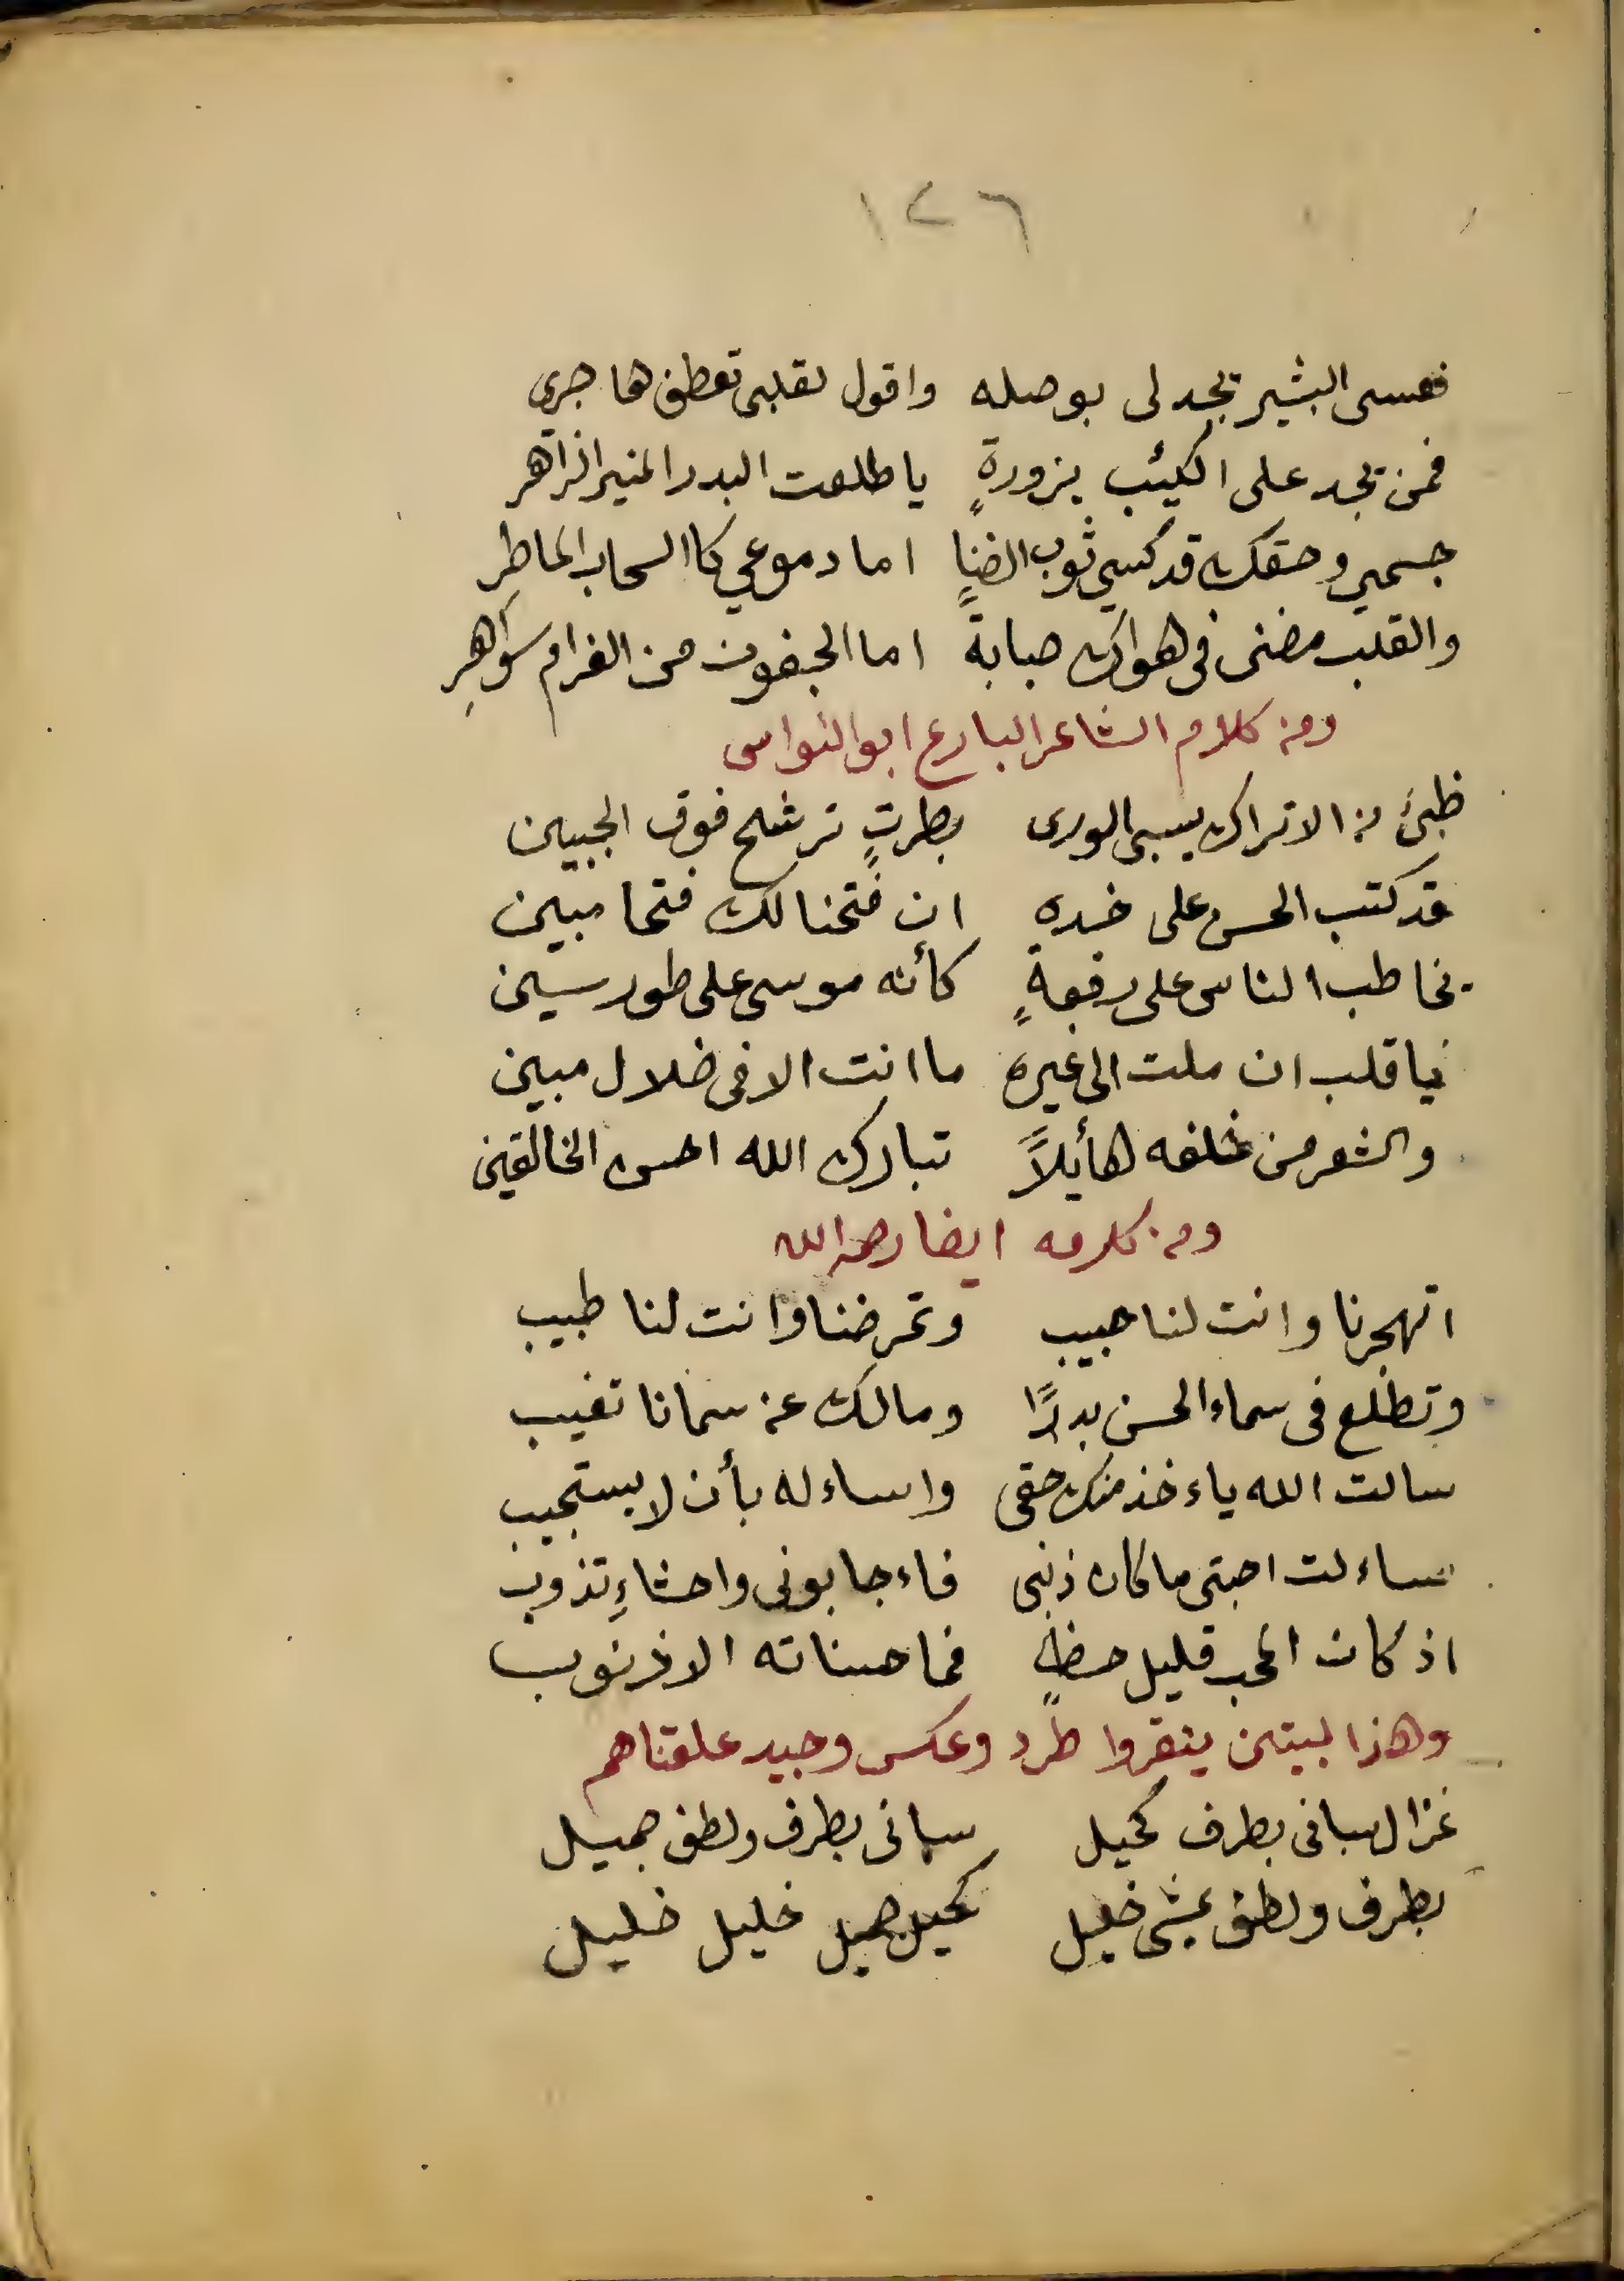 ١٢٦
فعسى البشير يجد لى بوصله واقول لقلبى تعطف هاجري
فمن يجد على الكئيب بزورةٍ يا طلعت البدر المنير الزاهر
جسمي وحقك قد كسي ثوب الضنا اما دموعي كا السحاب الماطرِ
والقلب مضنى فى هواك صبابةً اما الجفون من الغرام سواهرِ
ومن كلام الشاعر البارع ابو النواس
ظبىٌ من الاتراك يسبى الورى بطرتٍ ترشح فوق الجبين
قد كتب الحسن على خده ان فتحنا لك فتحا مبين
يخاطب الناس على رفعةٍ كأنه موسى على طور سين
فيا قلب ان ملت الى غيره ما انت الا فى ضلال مبين
والشعر من خلفه هأيلاً تبارك الله احسن الخالقين
ومن كلامه ايضا رحمه الله
اتهجرنا وانت لنا حبيب وتمرضنا وانت لنا طبيب
وتطلع فى سماء الحسن بدرًا ومالك عن سمانا تغيب
سالت الله ياءخذ منك حقى واساءله بأن لا يستجيب
ساءلت احبتى ما كان ذنبى فاءجابونى واحشاءِ تذوب
اذ كان المحب قليل حظٍ فما حسناته الا ذنوب
وهذا لبيتين ينقروا طرد وعكس وجيد علقناهم
غزال سبانى بطرف كحيل سبانى بطرف ولطف جميل
بطرف ولطف يمشى خليل كحيل جميل خليل خليل